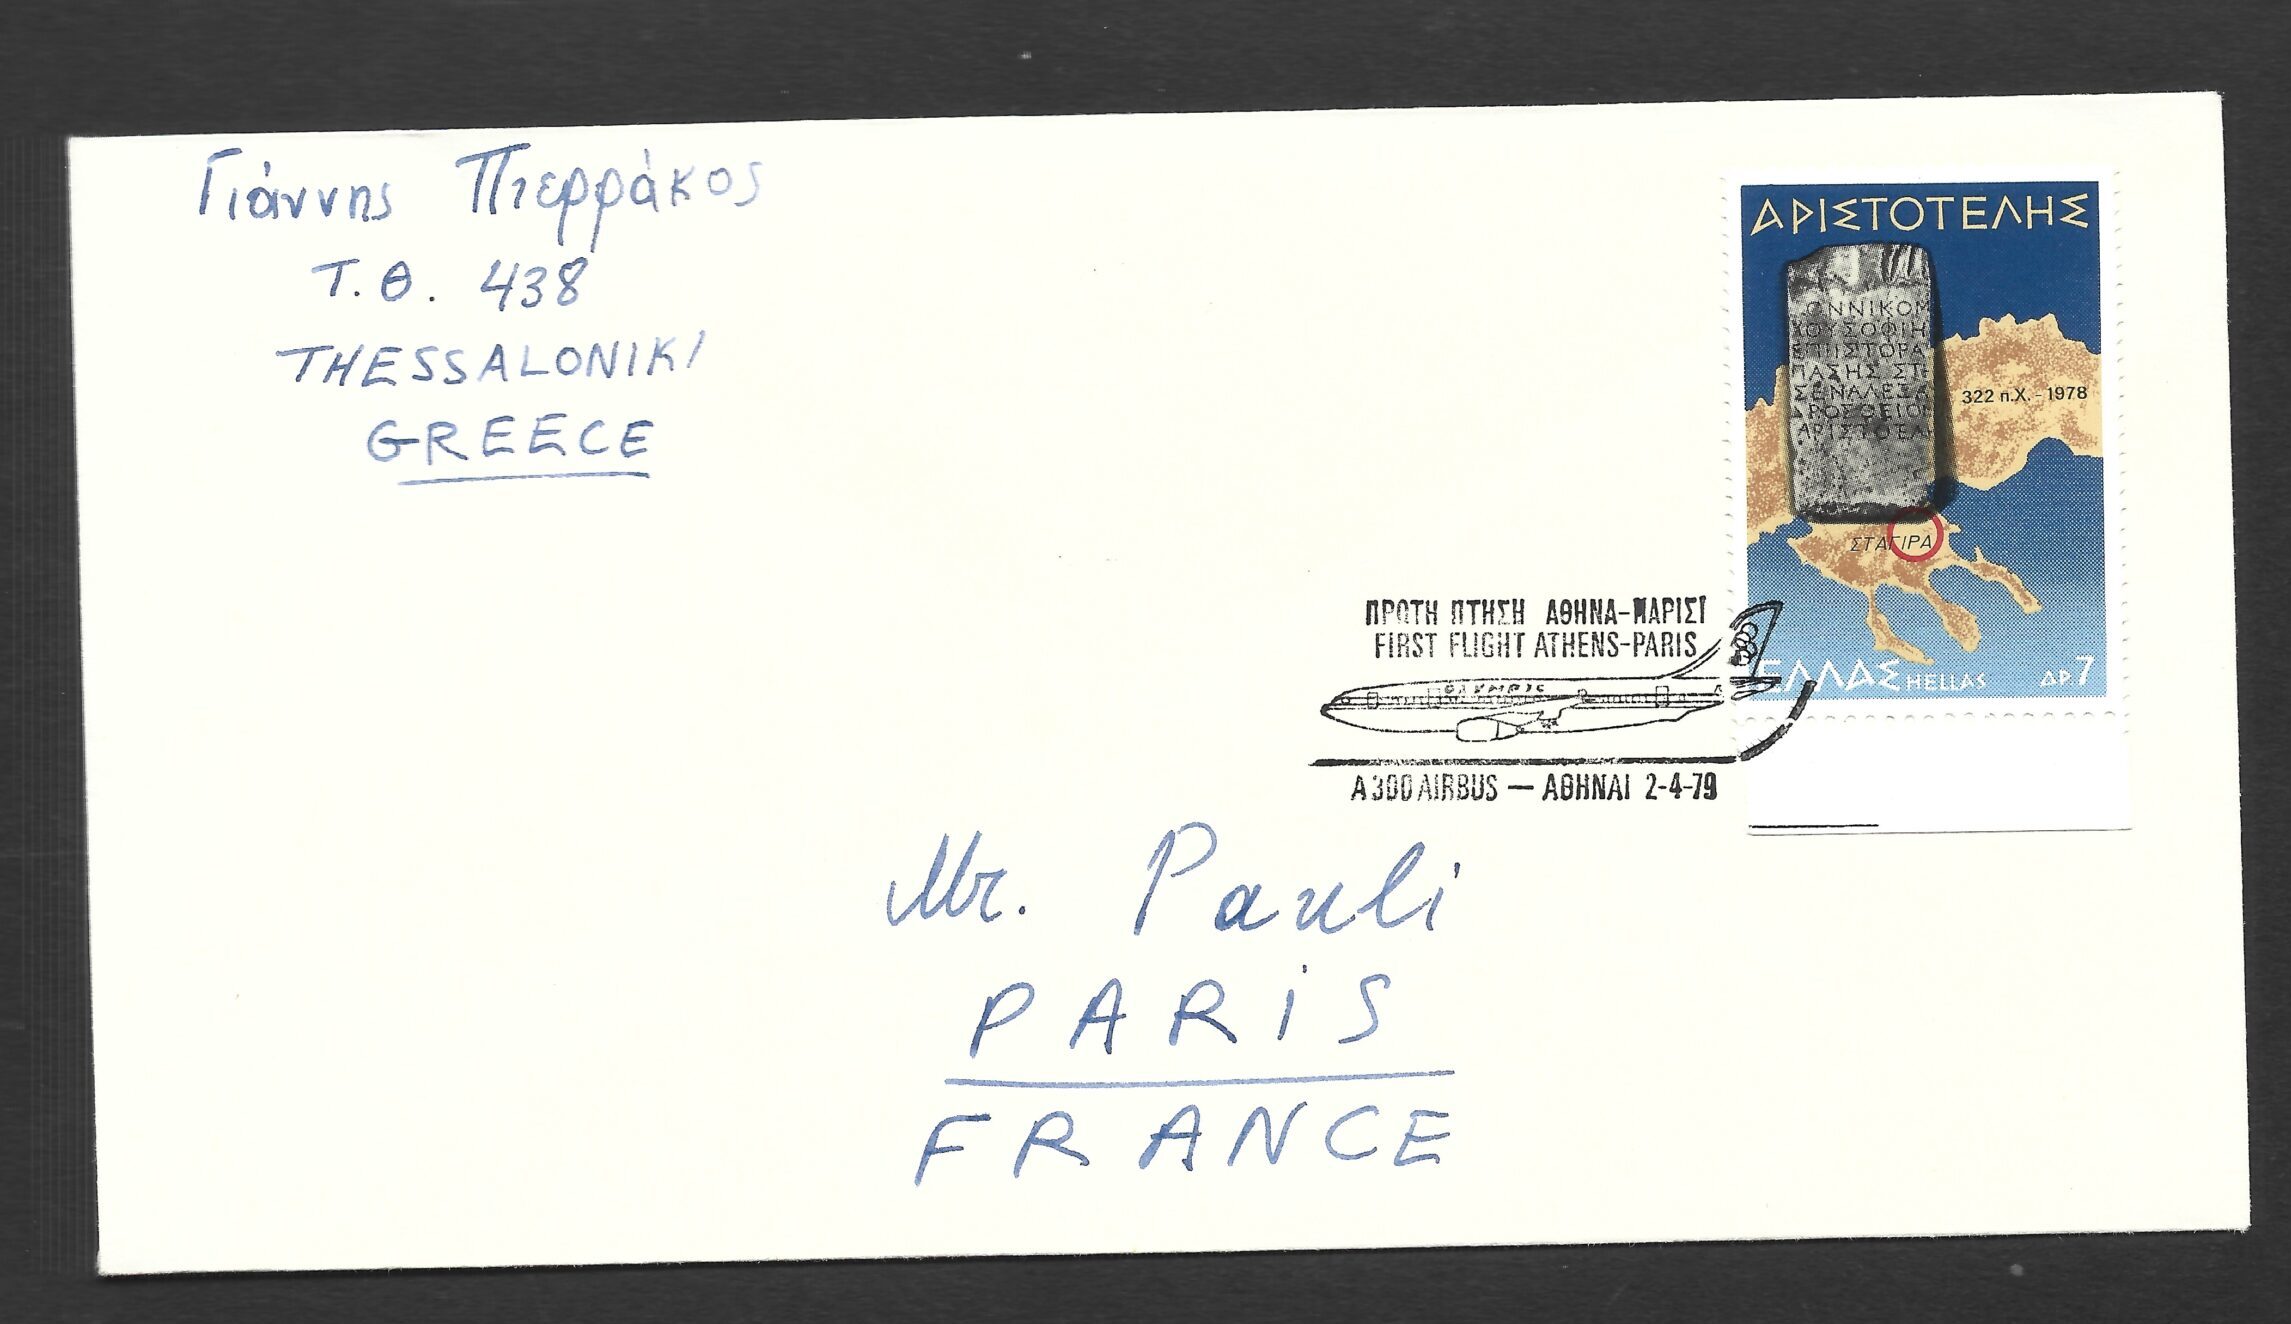 Γιάννης Πιερράκος
Τ.Θ. 438
THESSALONIKI
GREECE
ΑΡΙΣΤΟΤΕΛΗΣ
ΟΝΝΙΚΟΜ
ΧΟΥΣΟΦΙΗ
ΕΠΙΙΣΤΟΡΑ
ΠΑΣΗΣ ΣΤΕ
322 π.Χ. - 1978
ΣΤΑΓΙΡΑ
ΕΛΛΑΣ HELLAS ΔΡ 7
ΠΡΩΤΗ ΠΤΗΣΗ ΑΘΗΝΑ-ΠΑΡΙΣΙ
FIRST FLIGHT ATHENS-PARIS
OLYMPIC
A300 AIRBUS — ΑΘΗΝΑΙ 2-4-79
Mr. Pauli
PARiS
FRANCE